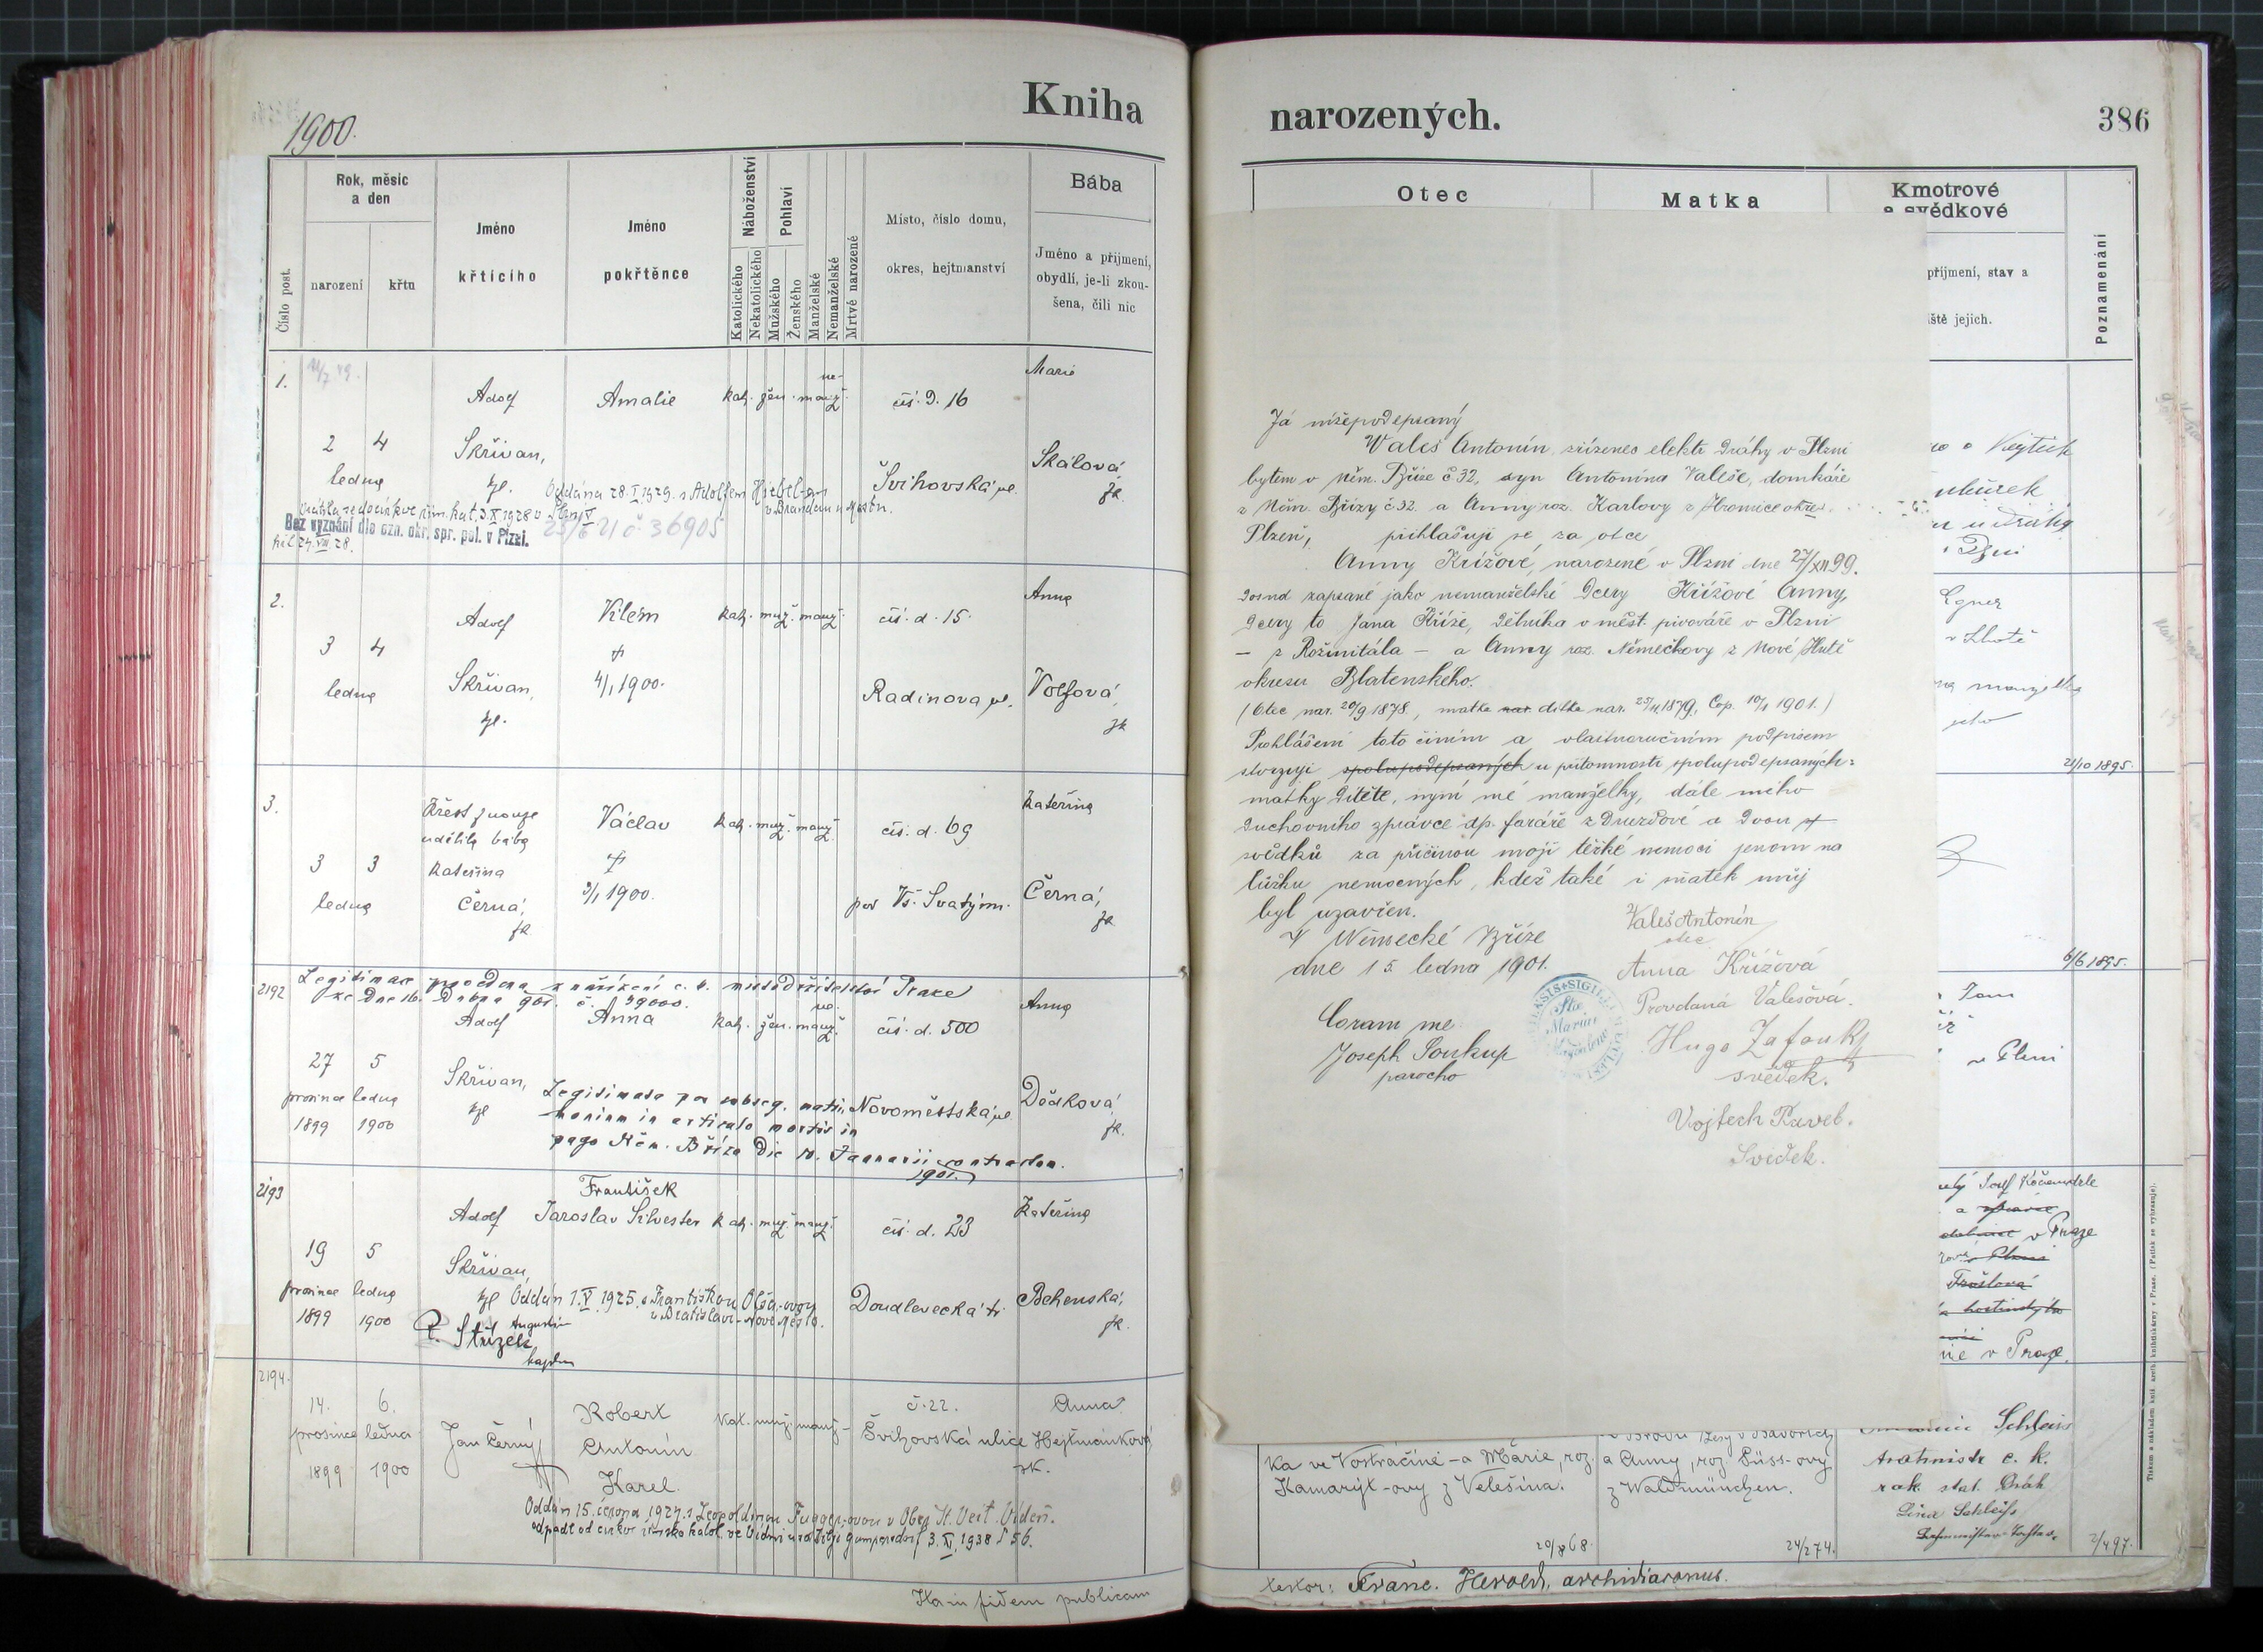 1900.
Kniha
narozených.
386
Číslo post.
Rok, měsíc
a den
narození
křtu
Jméno
křtícího
Jméno
pokřtěnce
Náboženství
Katolického
Nekatolického
Pohlaví
Mužského
Ženského
Manželské
Nemanželské
Mrtvě narozené
Místo, číslo domu,
okres, hejtmanství
Bába
Jméno a příjmení,
obydlí, je-li zkou-
šena, čili nic
Otec
Matka
Kmotrové
a svědkové
příjmení, stav a
iště jejich.
Poznamenání
1.
Adolf
Amalie
kat. žen. ne-manž.
čís. d. 16
Marie
2 4
ledna
Skřivan,
kpl.
Švihovská ul.
Skálová
zk.
Oddána 28.I.1929. s Adolfem
v Brandou n. Mestn.
Vrátila se do církve řím. kat. 3.X.1928 v Plzni
Bez vyznání dle ozn. okr. spr. pol. v Plzni.
25/6 21 č. 36905
2.
Adolf
Vilém
kat. muž. manž.
čís. d. 15.
Anna
3 4
ledna
Skřivan,
kpl.
4/1 1900.
Radinova ul.
Volfová,
zk
3.
Křest z nouze
udělila bába
Václav
kat. muž. manž.
čís. d. 69
Kateřina
3 3
ledna
Kateřina
Černá,
zk
3/1 1900.
pod Vš. Svatými.
Černá,
zk
2192
Legitimace provedena z nařízení c. k. místodržitelství Praze
ze dne 16. dubna 901. č. 39000.
Adolf
Anna
kat. žen. ne-manž.
čís. d. 500
Anna
27 5
prosince ledna
1899 1900
Skřivan,
kpl
Novoměstská ul.
Dědková
zk.
Legitimata per subseq. matri-
monium in articulo mortis in
pago Něm. Bříza die 10. Januarii contractum.
1901.
2193
František
Adolf
Jaroslav Silvester
kat. muž. manž.
čís. d. 23
Kateřina
19 5
prosince ledna
1899 1900
Skřivan,
kpl
Doudlevecká tř.
Behenská,
zk.
Oddán 1.V.1925. s Františkou Olša-ovou
v Bratislavě-Nové Město.
P. Augustin
Střízek
kaplan
2194.
14. 6.
prosince ledna
1899 1900
Jan Černý
Robert
Antonín
Karel.
kat. muž. manž.
č. 22.
Švihovská ulice
Anna
Hejtmánková
zk.
Oddán 15. června 1924. s Leopoldinou Fugger-ovou v Ober St. Veit. Vídeň.
odpadl od církve římsko katol. ve Vídni u far. Gumpendorf 3.XI.1938 č 56.
Ita in fidem publicam
Já nížepodepsaný
Valeš Antonín, zřízenec elektr. dráhy v Plzni
bytem v Něm. Bříze č 32, syn Antonína Valeše, domkáře
z Něm. Břízy č 32. a Anny roz. Karlovy z Hromice okres.
Plzeň, přihlašuji se za otce
Anny Křížové, narozené v Plzni dne 27/XII 99.
posud zapsané jako nemanželské dcery Křížové Anny,
dcery to Jana Kříže, dělníka v měst. pivováře v Plzni
– z Rožmitála – a Anny roz. Němečkovy z Nové Hutě
okresu Blatenského.
(Otec nar. 20/9 1878., matka nar. dítka nar. 25/11 1879., Cop. 10/1 1901.)
Prohlášení toto činím a vlastnoručním podpisem
stvrzuji spolupodepsaných u přítomnosti spolupodepsaných:
matky dítěte, nyní mé manželky, dále mého
duchovního zprávce dp. faráře z Druzdové a dvou
svědků za příčinou mojí těžké nemoci jenom na
lůžku nemocných, kdež také i sňatek můj
byl uzavřen.
V Německé Bříze
dne 15. ledna 1901.
Valeš Antonín
otec
Anna Křížová
Provdaná Valešová.
Coram me
Joseph Soukup
parocho
Hugo Zafouk
svědek.
Vojtech Pavel.
Svědek.
v Lhotě
21/10 1895.
6/6 1895.
v Plzni
v Praze
v Praze.
ka ve Vostračíně – a Marie, roz.
Kamarýt-ovy z Velešína.
a Anny, roz. Süss-ovy
z Waldmünchen.
Schleiss
tratmistr c. k.
rak. stat. drah
Lina Schleiss
Bahnmeister-Tochter.
20/8 68.
24/2 74.
2/4 97.
Franc. Herold, archidiaconus.